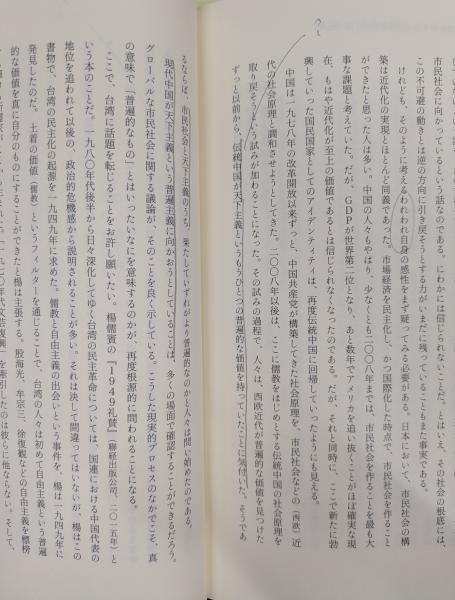 市民社会に向かっているという話なのである。にわかには信じられないことだ。とはいえ、その社会の根底には、
この不可避の動きとは逆の方向に引き戻そうとする力がいまだに残っていることもまた事実である。
けれども、そのように考えるわれわれ自身の感性をまず疑ってみる必要がある。日本において、市民社会の構
築は近代化の実現とほとんど同義であった。市場経済を民主化し、かつ国際化した時点で、市民社会を作ること
ができたと思った人は多い。中国の人々もやはり、少なくとも二〇〇八年までは、市民社会を作ることを最も大
事な課題と考えていた。だが、GDPが世界第二位となり、あと数年でアメリカを追い抜くことがほぼ確実な現
在、もはや近代化が至上の価値であるとは信じられなくなったのである。だが、それと同時に、ここで新たに勃
興していった国民国家としてのアイデンティティは、再度伝統中国に回帰していったようにも見える。
中国は一九七八年の改革開放以来ずっと、中国共産党が構築してきた社会原理を、市民社会などの(西欧)近
代の社会原理と調和させようとしてきた。二〇〇八年以後は、ここに儒教をはじめとする伝統中国の社会原理を
取り戻そうという試みが加わることになった。その試みの過程で、人々は、西欧近代が普遍的な価値を見つけた
ずっと以前から、伝統中国が天下主義というもうひとつの普遍的な価値を持っていたことに気付いた。そうであ
るならば、市民社会と天下主義のうち、果たしていずれがより普遍的なのかと人々は問い始めたのである。
現代中国が天下主義という普遍主義に向かおうとしていることは、多くの場面で確認することができるだろう。
グローバルな市民社会に関する議論が、そのことを良く示している。こうした現実的プロセスのなかでこそ、真
の意味で「普遍的なもの」とはいったいなにを意味するのかが、再度根源的に問われることになる。
ここで、台湾に話題を転じることをお許し願いたい。楊儒賓の『1949礼賛』(聯経出版公司、二〇一五年)と
いう本のことだ。一九八〇年代後半から日々深化してゆく台湾の民主革命については、国連における中国代表の
地位を追われて以後の、政治的危機感から説明されることが多い。それは決して間違ってはいないが、楊はこの
書物で、台湾の民主化の起源を一九四九年に求めた。儒教と自由主義の出会いという事件を、楊は一九四九年に
発見したのだ。土着の価値(儒教)というフィルターを通じることで、台湾の人々は初めて自由主義という普遍
的な価値を真に自分のものにすることができたと楊は主張する。殷海光、牟宗三、徐復観などの自由主義を標榜